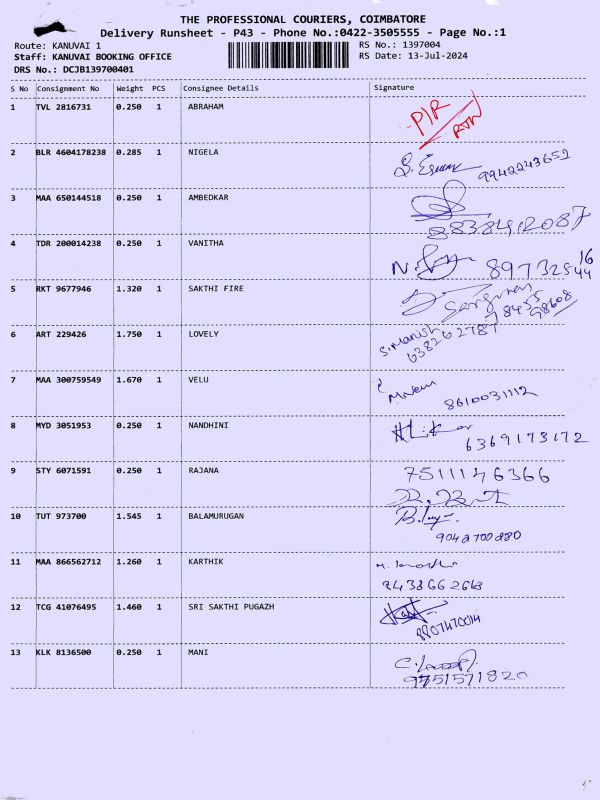 THE PROFESSIONAL COURIERS, COIMBATORE
Delivery Runsheet - P43 - Phone No.:0422-3505555 - Page No.:1
Route: KANUVAI 1 RS No.: 1397004
Staff: KANUVAI BOOKING OFFICE RS Date: 13-Jul-2024
DRS No.: DCJB139700401
S No Consignment No Weight PCS Consignee Details Signature
1 TVL 2816731 0.250 1 ABRAHAM P/R RTN
2 BLR 4604178238 0.285 1 NIGELA 9942243652
3 MAA 650144518 0.250 1 AMBEDKAR 8838412087
4 TDR 200014238 0.250 1 VANITHA
5 RKT 9677946 1.320 1 SAKTHI FIRE
6 ART 229426 1.750 1 LOVELY S.Manish
638262787
7 MAA 300759549 1.670 1 VELU
8610031112
8 MYD 3051953 0.250 1 NANDHINI
6369173172
9 STY 6071591 0.250 1 RAJANA 7511146366
10 TUT 973700 1.545 1 BALAMURUGAN
9042700880
11 MAA 866562712 1.260 1 KARTHIK
9438662668
12 TCG 41076495 1.460 1 SRI SAKTHI PUGAZH
8907470014
13 KLK 8136500 0.250 1 MANI
9751571820